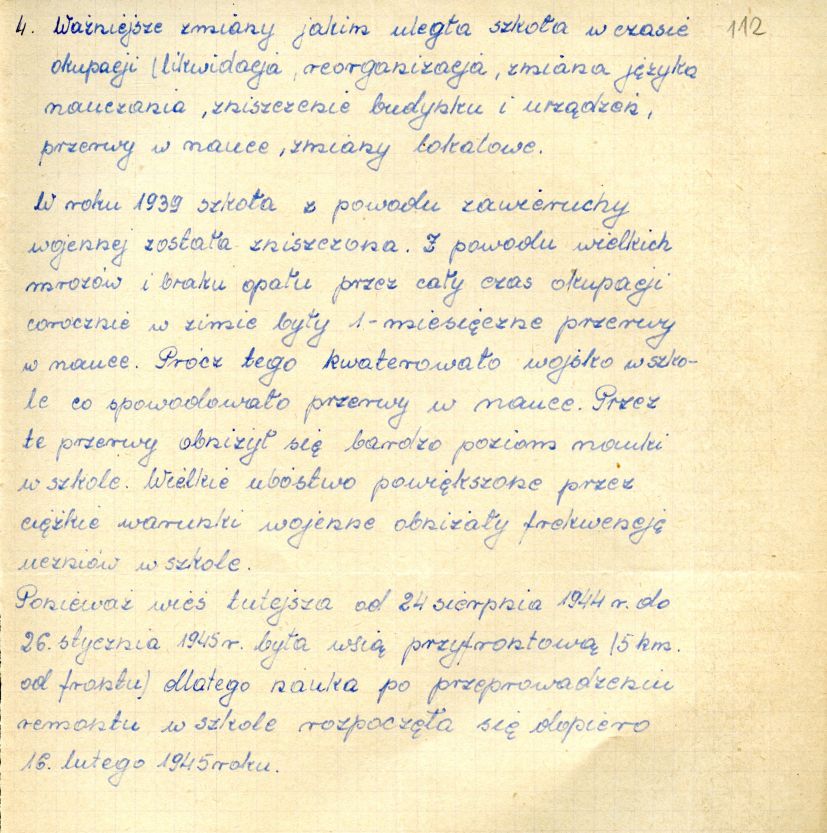 4. Ważniejsze zmiany jakim uległa szkoła w czasie 112
okupacji (likwidacja, reorganizacja, zmiana języka
nauczania, zniszczenie budynku i urządzeń,
przerwy w nauce, zmiany lokalowe.
W roku 1939 szkoła z powodu zawieruchy
wojennej została zniszczona. Z powodu wielkich
mrozów i braku opału przez cały czas okupacji
corocznie w zimie były 1-miesięczne przerwy
w nauce. Prócz tego kwaterowało wojsko w szko-
le co spowodowało przerwy w nauce. Przez
te przerwy obniżył się bardzo poziom nauki
w szkole. Wielkie ubóstwo powiększone przez
ciężkie warunki wojenne obniżały frekwencję
uczniów w szkole.
Ponieważ wieś tutejsza od 24 sierpnia 1944 r. do
26. stycznia 1945 r. była wsią przyfrontową (5 km.
od frontu) dlatego nauka po przeprowadzeniu
remontu w szkole rozpoczęła się dopiero
16. lutego 1945 roku.